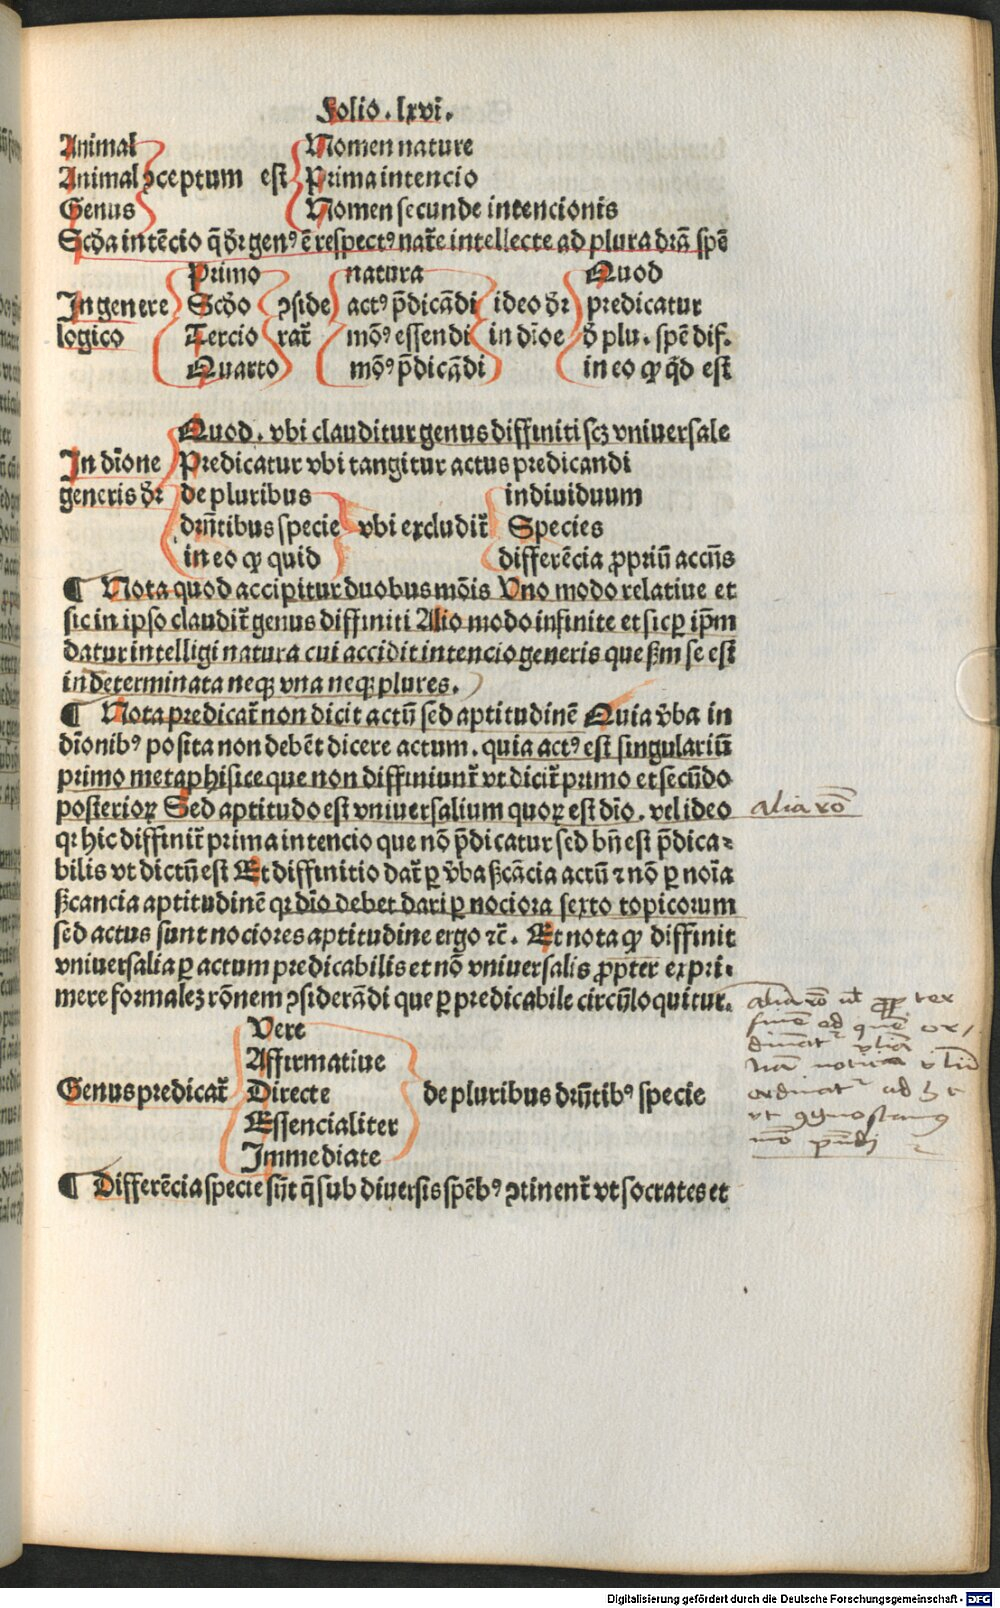 Folio. lxvi.
Animal Nomen nature
Animal ꝯceptum est Prima intencio
Genus Nomen secunde intencionis
Scḋa intēcio q̄ dr̄ gen⁹ ē respect⁹ nat̄e intellecte ad plura dr̄a spē
Primo natura Quod
In genere Scḋo ꝯside act⁹ p̄dicādi ideo dr̄ predicatur
logico Tercio rat̄ mō⁹ essendi in dīoe d̄ plu. spē dif.
Quarto mō⁹ p̄dicādi in eo ꝙ qd̄ est
Quod. vbi clauditur genus diffiniti scꝫ vniuersale
In dīone Predicatur vbi tangitur actus predicandi
generis dr̄ de pluribus indiuiduum
drn̄tibus specie vbi excludit̄ Species
in eo ꝙ quid differēcia ꝓpriū accn̄s
¶ Nota quod accipitur duobus mōis Uno modo relatiue et
sic in ipso claudit̄ genus diffiniti Alio modo infinite et sic ꝑ ip̄m
datur intelligi natura cui accidit intencio generis que ẜm se est
indeterminata neqꝫ vna neqꝫ plures.
¶ Nota predicat̄ non dicit actū sed aptitudinē Quia v̄ba in
dīonib⁹ posita non debēt dicere actum. quia act⁹ est singulariū
primo metaphisice que non diffiniunt̄ vt dicit̄ primo et secūdo
posterioꝝ Sed aptitudo est vniuersalium quoꝝ est dīo. vel ideo
qꝛ hic diffinit̄ prima intencio que nō p̄dicatur sed bn̄ est p̄dica⸗
bilis vt dictū est Et diffinitio dat̄ ꝑ v̄ba ẜcācia actū ⁊ nō ꝑ noīa
ẜcancia aptitudinē qꝛ dīo debet dari ꝑ nociora sexto topicorum
sed actus sunt nociores aptitudine ergo ⁊c̄. Et nota ꝙ diffinit
vniuersalia ꝑ actum predicabilis et nō vniuersalis ꝓpter expri⸗
mere formaleꝫ rōnem ꝯsiderādi que ꝑ predicabile circūloquitur.
Vere
Affirmatiue
Genus predicat̄ Directe de pluribus drn̄tib⁹ specie
Essencialiter
Immediate
¶ Differēcia specie sūt q̄ sub diuersis spēb⁹ ꝯtinent̄ vt socrates et
alia rō
alia rō
Digitalisierung gefördert durch die Deutsche Forschungsgemeinschaft - DFG